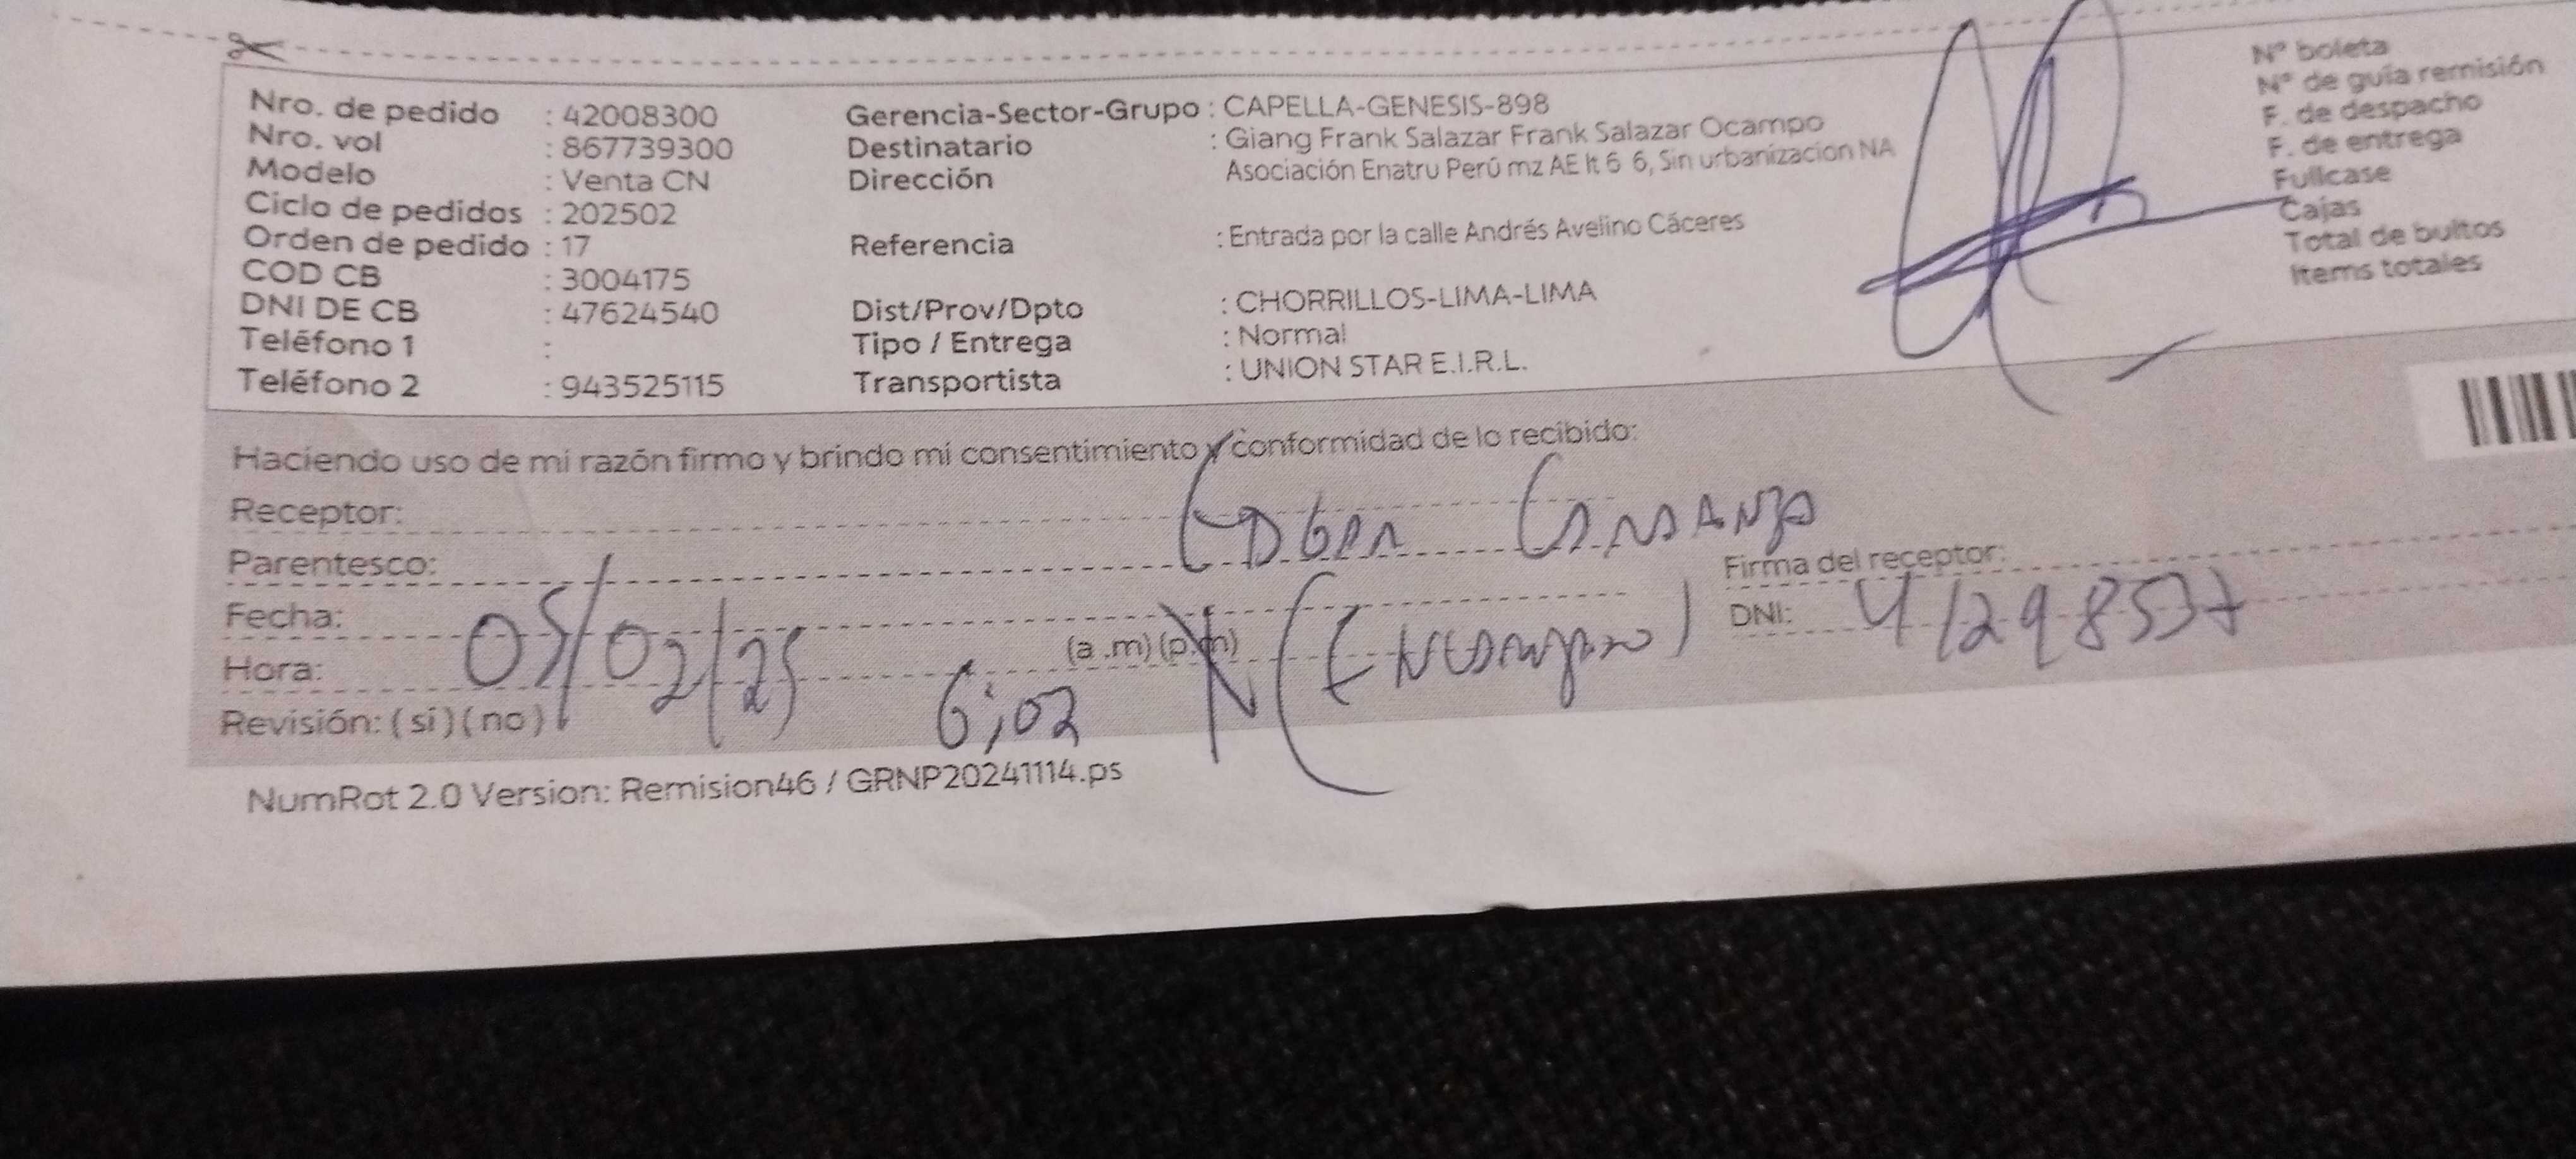 Nro. de pedido : 42008300
Nro. vol : 867739300
Modelo : Venta CN
Ciclo de pedidos : 202502
Orden de pedido : 17
COD CB : 3004175
DNI DE CB : 47624540
Teléfono 1 :
Teléfono 2 : 943525115
Gerencia-Sector-Grupo : CAPELLA-GENESIS-898
Destinatario : Giang Frank Salazar Frank Salazar Ocampo
Dirección Asociación Enatru Perú mz AE lt 6 6, Sin urbanizacion NA
Referencia : Entrada por la calle Andrés Avelino Cáceres
Dist/Prov/Dpto : CHORRILLOS-LIMA-LIMA
Tipo / Entrega : Normal
Transportista : UNION STAR E.I.R.L.
N° boleta
N° de guía remisión
F. de despacho
F. de entrega
Fullcase
Cajas
Total de bultos
Items totales
Haciendo uso de mi razón firmo y brindo mi consentimiento y conformidad de lo recibido:
Receptor: EDGAR
Parentesco:
Firma del receptor:
Fecha: 05/02/25
DNI: 41298537
Hora: 6:02 (a .m) (p.m)
Revisión: ( si ) ( no )
NumRot 2.0 Version: Remision46 / GRNP20241114.ps